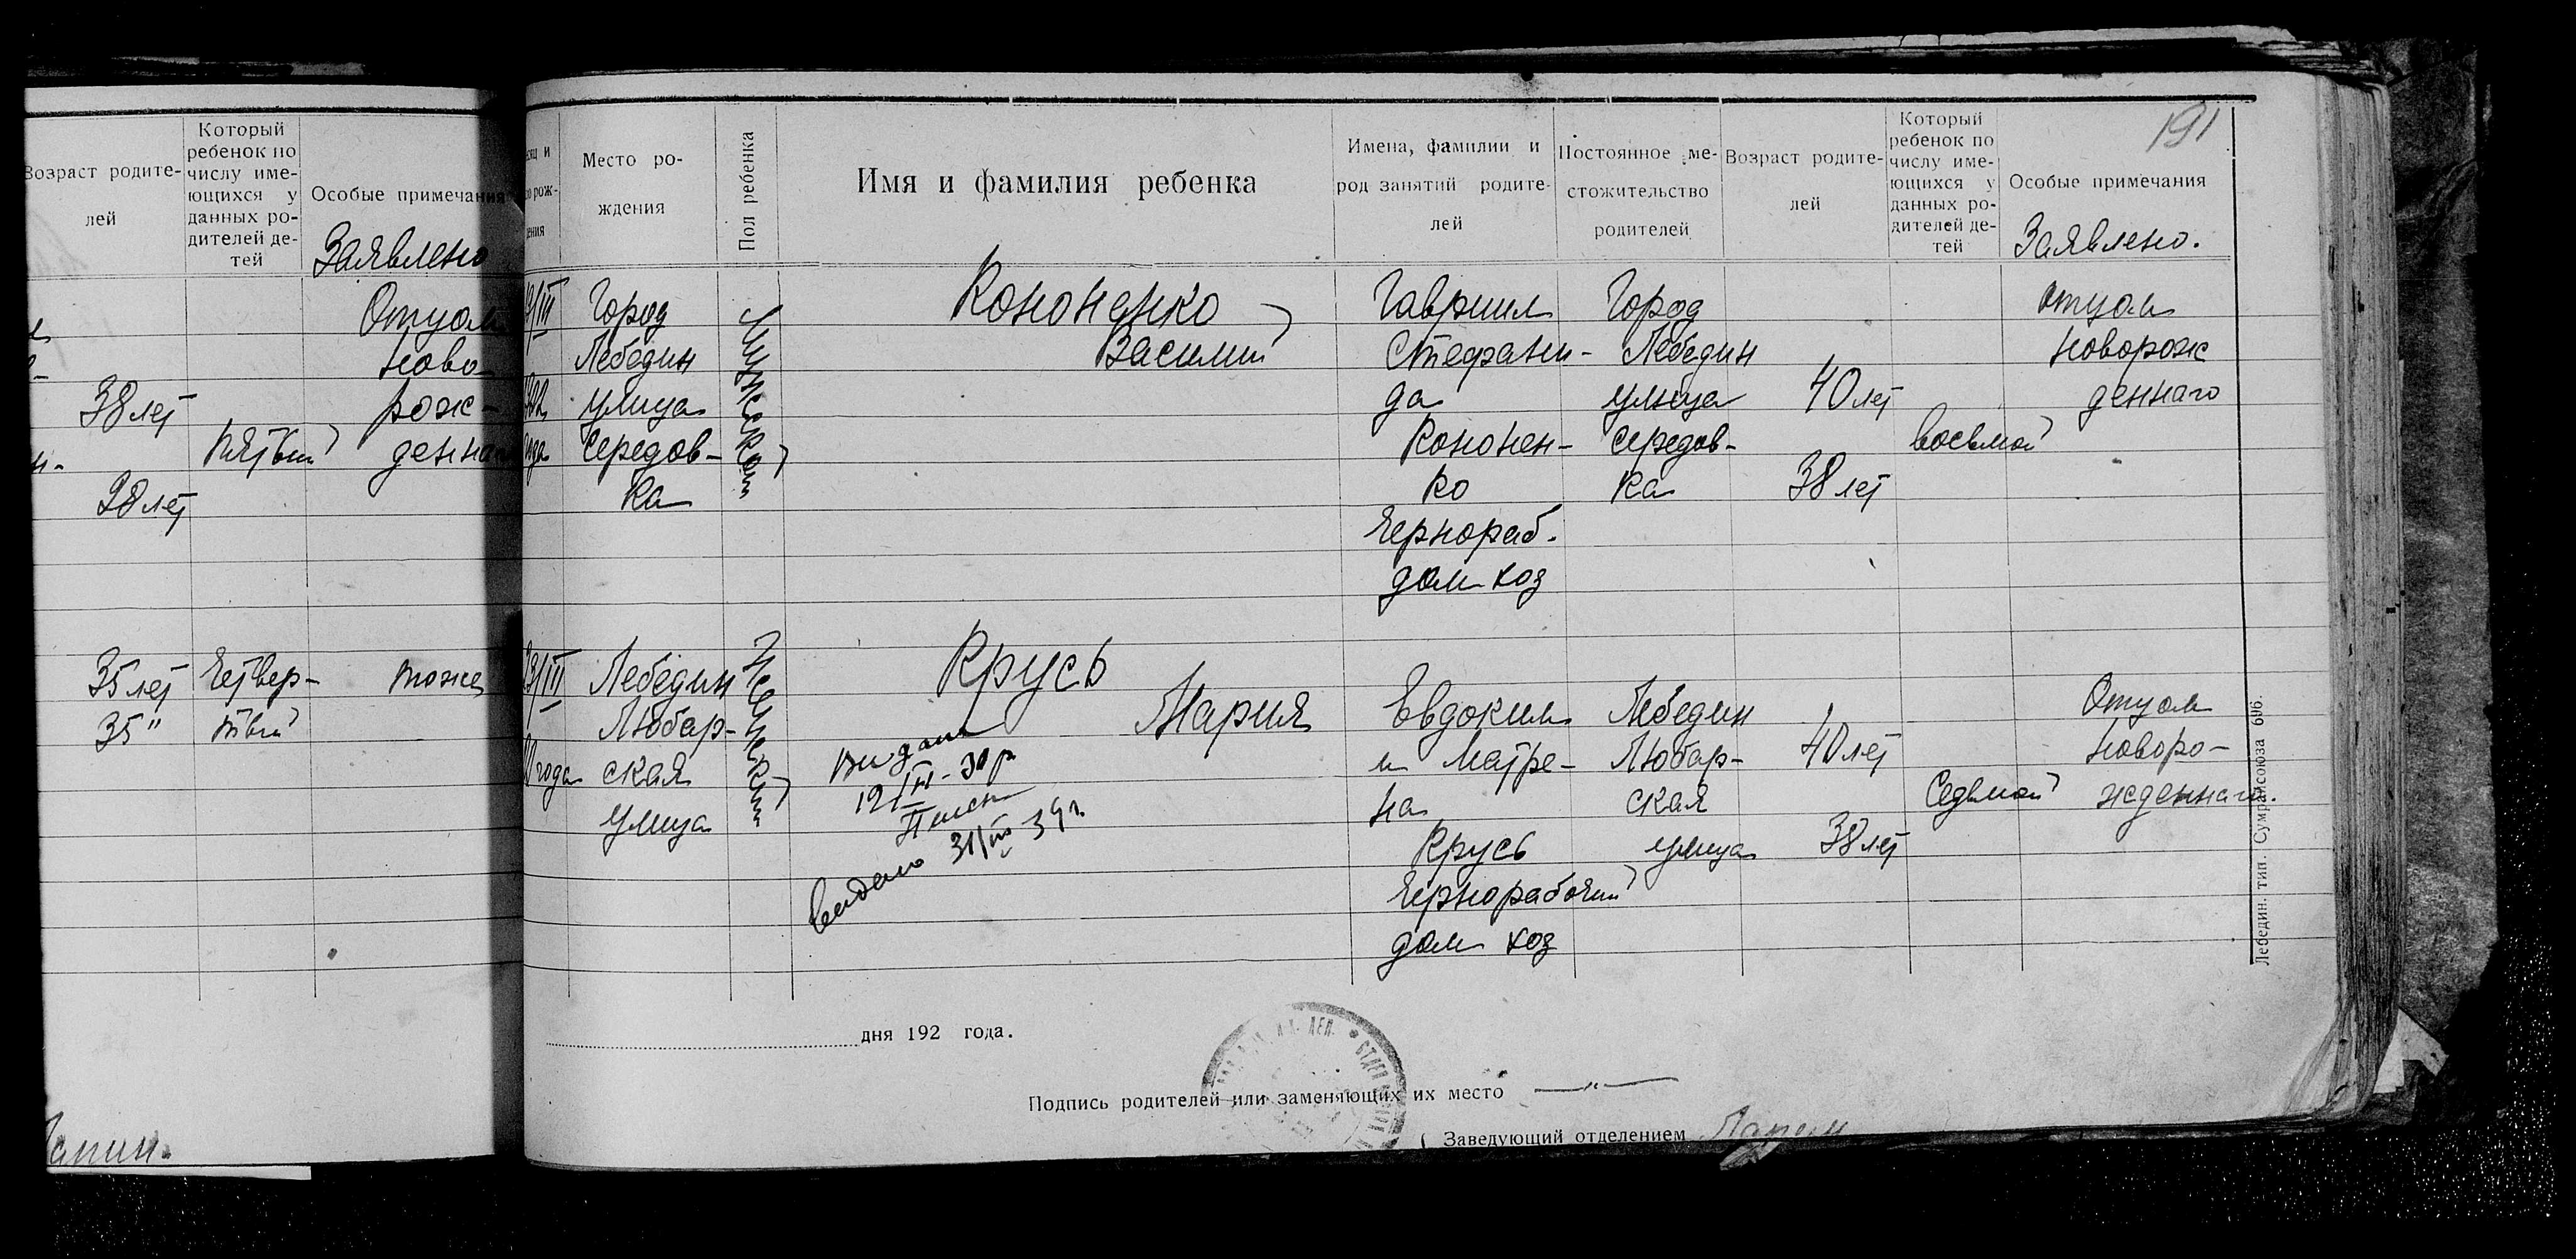 Возраст родите-
лей
Который
ребенок по
числу име-
ющихся у
данных ро-
дителей де-
тей
Особые примечания
Заявлено
38 лет
28 лет
Пятый
Отцом
ново-
рож-
денна
35 лет
35 "
Четвер-
тый
тоже
Место ро-
ждения
Пол ребенка
Имя и фамилия ребенка
Имена, фамилии и
род занятий родите-
лей
Постоянное ме-
стожительство
родителей
Возраст родите-
лей
Который
ребенок по
числу име-
ющихся у
данных ро-
дителей де-
тей
Особые примечания
191
Заявлено.
Город
Лебедин
улица
Середов-
ка
Мужской
Кононенко
Василий
Гавриил
Стефани-
да
Кононен-
ко
Чернораб.
дом хоз
Город
Лебедин
улица
Середов-
ка
40 лет
38 лет
восьмой
отцом
новорож
деннаго
года
Лебедин
Любар-
ская
улица
Женский
Крусь
Мария
Видана
12/III-30 р
видано 31/III 39 г.
Евдоким
и Матре-
на
Крусь
Чернорабочий
дом хоз
Лебедин
Любар-
ская
улица
40 лет
38 лет
Седьмой
Отцом
новоро-
жденнаго.
дня 192 года.
Подпись родителей или заменяющих их место —"—
Заведующий отделением
Лебедин. тип. Сумрайсоюза 696.